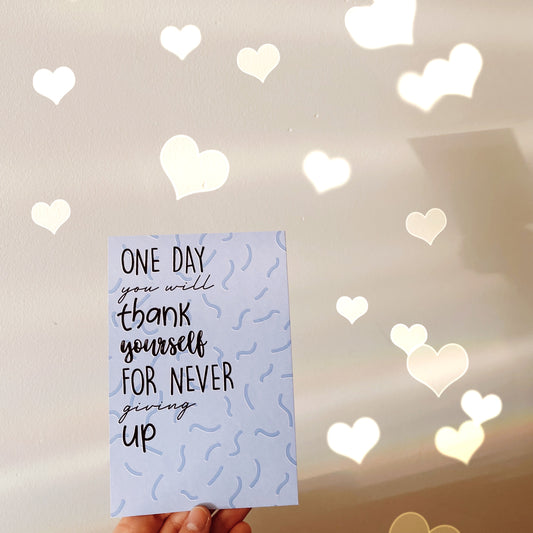 ONE DAY
you will
thank
yourself
FOR NEVER
giving
UP